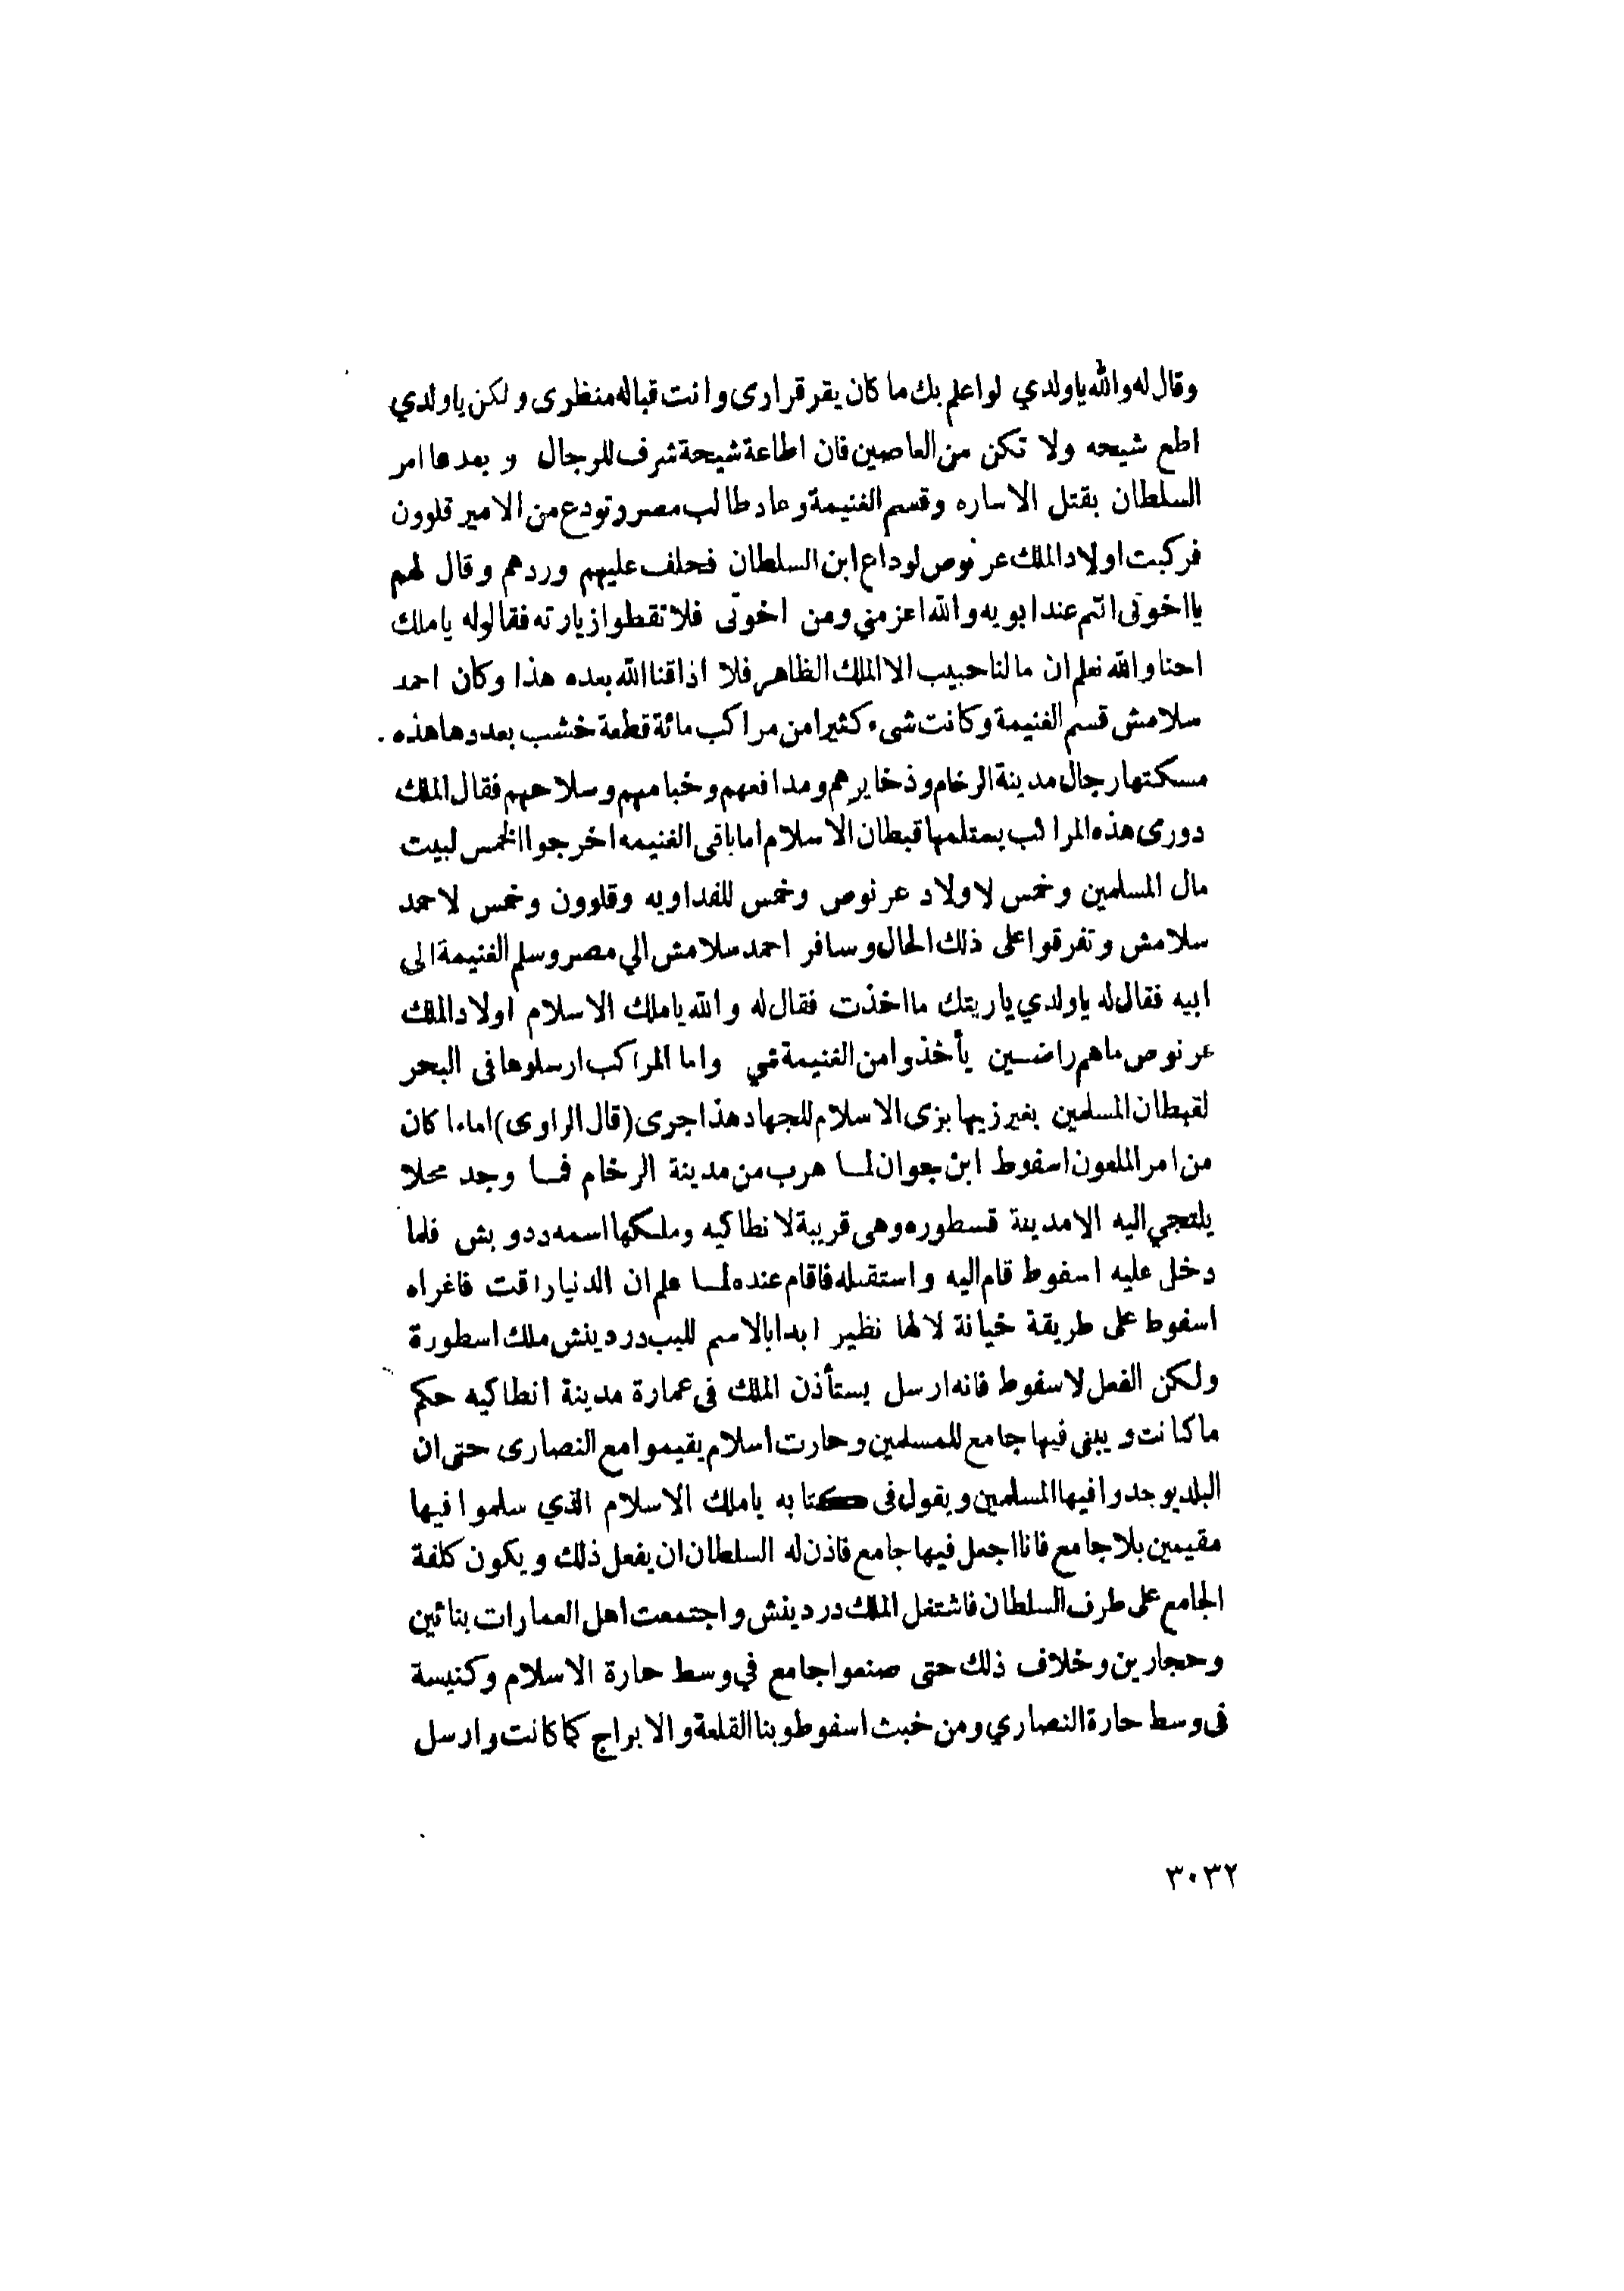 وقال له والله ياولدي لواعلم بك ما كان يقر قرارى وانت قباله منظرى ولكن ياولدي
اطع شيحه ولا تكن من العاصين فان اطاعة شيحة شرف للرجال وبعدها امر
السلطان بقتل الاساره وقسم الغنيمة وعاد طالب مصر وتودع من الامير قلوون
فركبت اولاد الملك عرنوص لوداع ابن السلطان فحلف عليهم وردهم وقال لهم
يااخوتى انتم عند ابويه والله اعز مني ومن اخوتى فلا تقطوا زيارته فقالوله ياملك
احنا والله نعلم ان مالنا حبيب الا الملك الظاهر فلا اذاقنا الله بعده هذا وكان احمد
سلامش قسم الغنيمة وكانت شىء كثيرا من مراكب مائة قطعة خشب بعددها هذه
مسكتها رجال مدينة الرخام وذخايرهم ومدافعهم وخيامهم وسلاحهم فقال الملك
دورى هذه المراكب يستلمها قبطان الاسلام اما باقى الغنيمه اخرجوا الخمس لبيت
مال المسلمين وخمس لاولاد عرنوص وخمس للفداويه وقلوون وخمس لاحمد
سلامش وتفرقوا على ذلك الحال وسافر احمد سلامش الي مصر وسلم الغنيمة الى
ابيه فقال له ياولدي ياريتك ما اخذت فقال له والله ياملك الاسلام اولاد الملك
عرنوص ماهم راضين يأخذوا من الغنيمة شي واما المراكب ارسلوها فى البحر
لقبطان المسلمين يغير زيها بزى الاسلام للجهاد هذا جرى (قال الراوى) اما ما كان
من امر الملعون اسفوط ابن جوان لما هرب من مدينة الرخام فما وجد محلا
يلتجي اليه الا مدينة قسطوره وهى قريبة لانطاكيه وملكها اسمه ددوبش فلما
دخل عليه اسفوط قام اليه واستقبله فاقام عنده لما علم ان الدنيا راقت فاغراه
اسفوط على طريقة خيانة لالها نظير ابدا بالاسم للبب دردينش ملك اسطورة
ولكن الفعل لاسفوط فانه ارسل يستأذن الملك فى عمارة مدينة انطاكيه حكم
ما كانت ويبنى فيها جامع للمسلمين وحارت اسلام يقيموا مع النصارى حتى ان
البلد يوجدوا فيها المسلمين ويقول فى كتابه ياملك الاسلام الذي سلموا فيها
مقيمين بلا جامع فانا اجعل فيها جامع فاذن له السلطان ان يفعل ذلك ويكون كلفة
الجامع على طرف السلطان فاشتغل الملك دردينش واجتمعت اهل العمارات بنائين
وحجارين وخلاف ذلك حتى صنعوا جامع في وسط حارة الاسلام وكنيسة
فى وسط حارة النصاري ومن خبث اسفوط وبنا القلعة والابراج كما كانت وارسل
٣٠٣٢